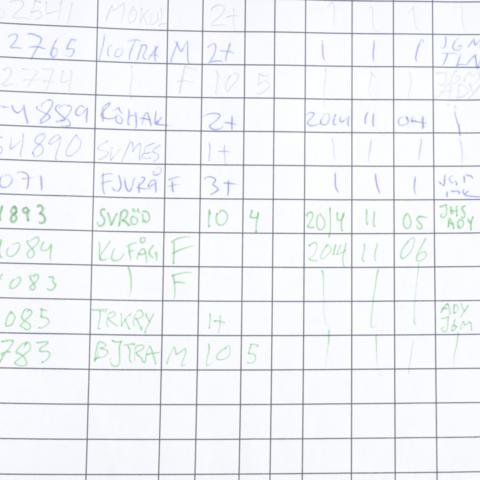 62541 MOKUL 2+ | | | |
2765 KOTRA M 2+ | | | JGM TLN
2774 | F 10 5 | | |
4889 RÖHAK 2+ 2014 11 04 |
54890 SVMES 1+ | | | |
071 FJVRÅ F 3+ | | |
1893 SVRÖD 10 4 2014 11 05 JHS ADY
084 KUFÅG F 2014 11 06
083 | F | | |
085 TRKRY 1+ | | | ADY JGM
783 BJTRA M 10 5 | | | |